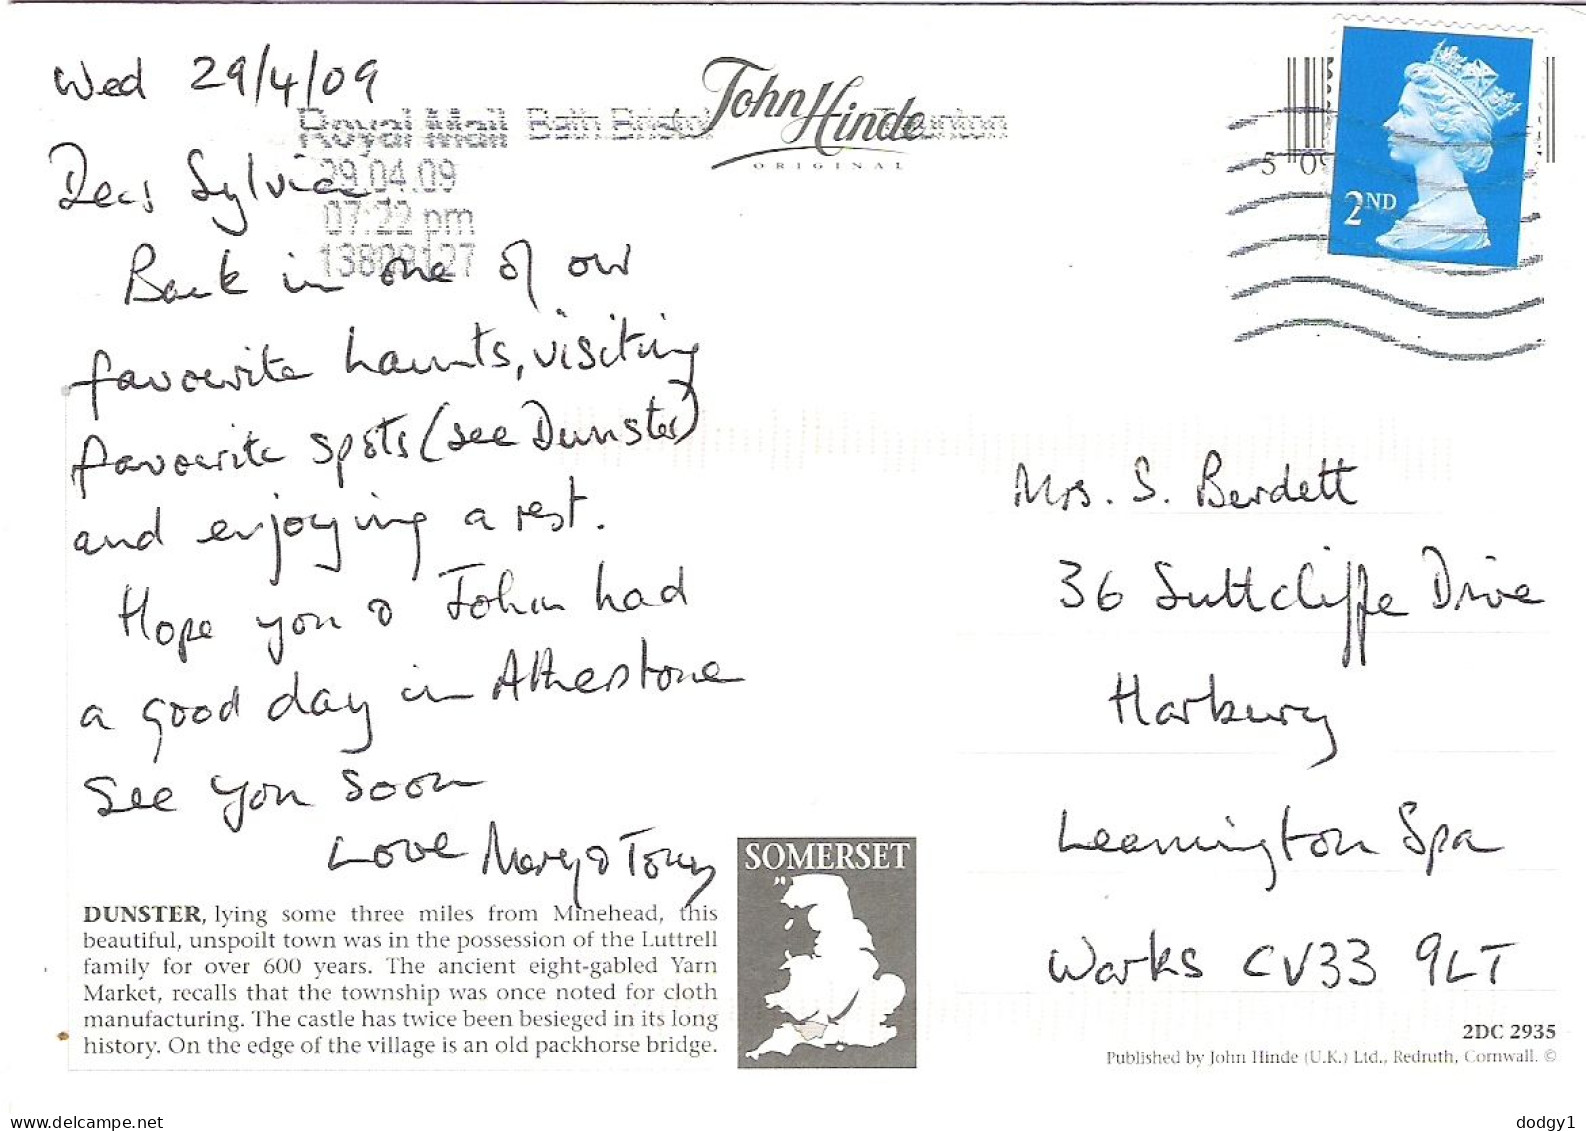 Wed 29/4/09
Royal Mail Bath Bristol Taunton
29.04.09
07:22 pm
John Hinde
ORIGINAL
2ND
5 0
Dear Sylvia,
Back in one of our
favourite haunts, visiting
favourite spots (see Dunster)
and enjoying a rest.
Hope you & John had
a good day in Atherstone
See you soon
Love Mary & Tony
Mrs. S. Berdett
36 Suttcliffe Drive
Harbury
Leamington Spa
Warks CV33 9LT
DUNSTER, lying some three miles from Minehead, this
beautiful, unspoilt town was in the possession of the Luttrell
family for over 600 years. The ancient eight-gabled Yarn
Market, recalls that the township was once noted for cloth
manufacturing. The castle has twice been besieged in its long
history. On the edge of the village is an old packhorse bridge.
SOMERSET
2DC 2935
Published by John Hinde (U.K.) Ltd., Redruth, Cornwall. ©
www.delcampe.net
dodgy1